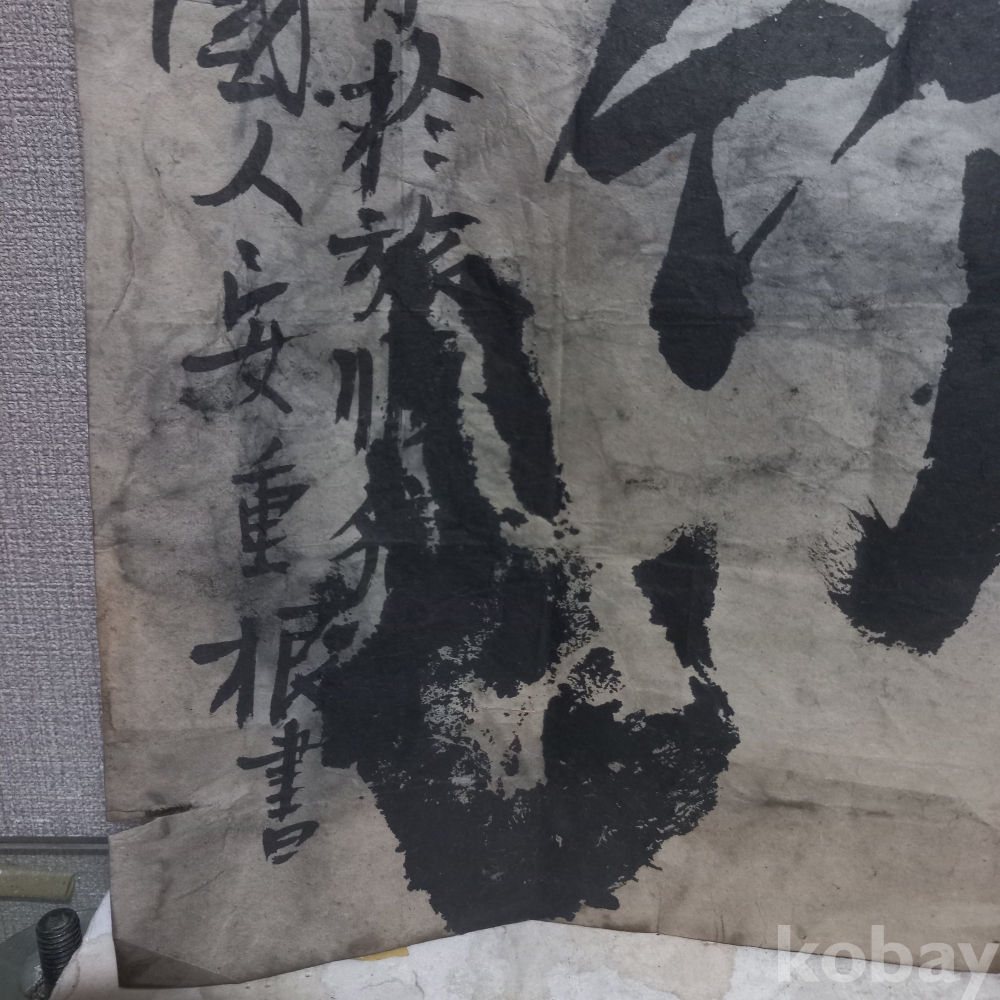 於旅順獄
國人安重根書
kobay